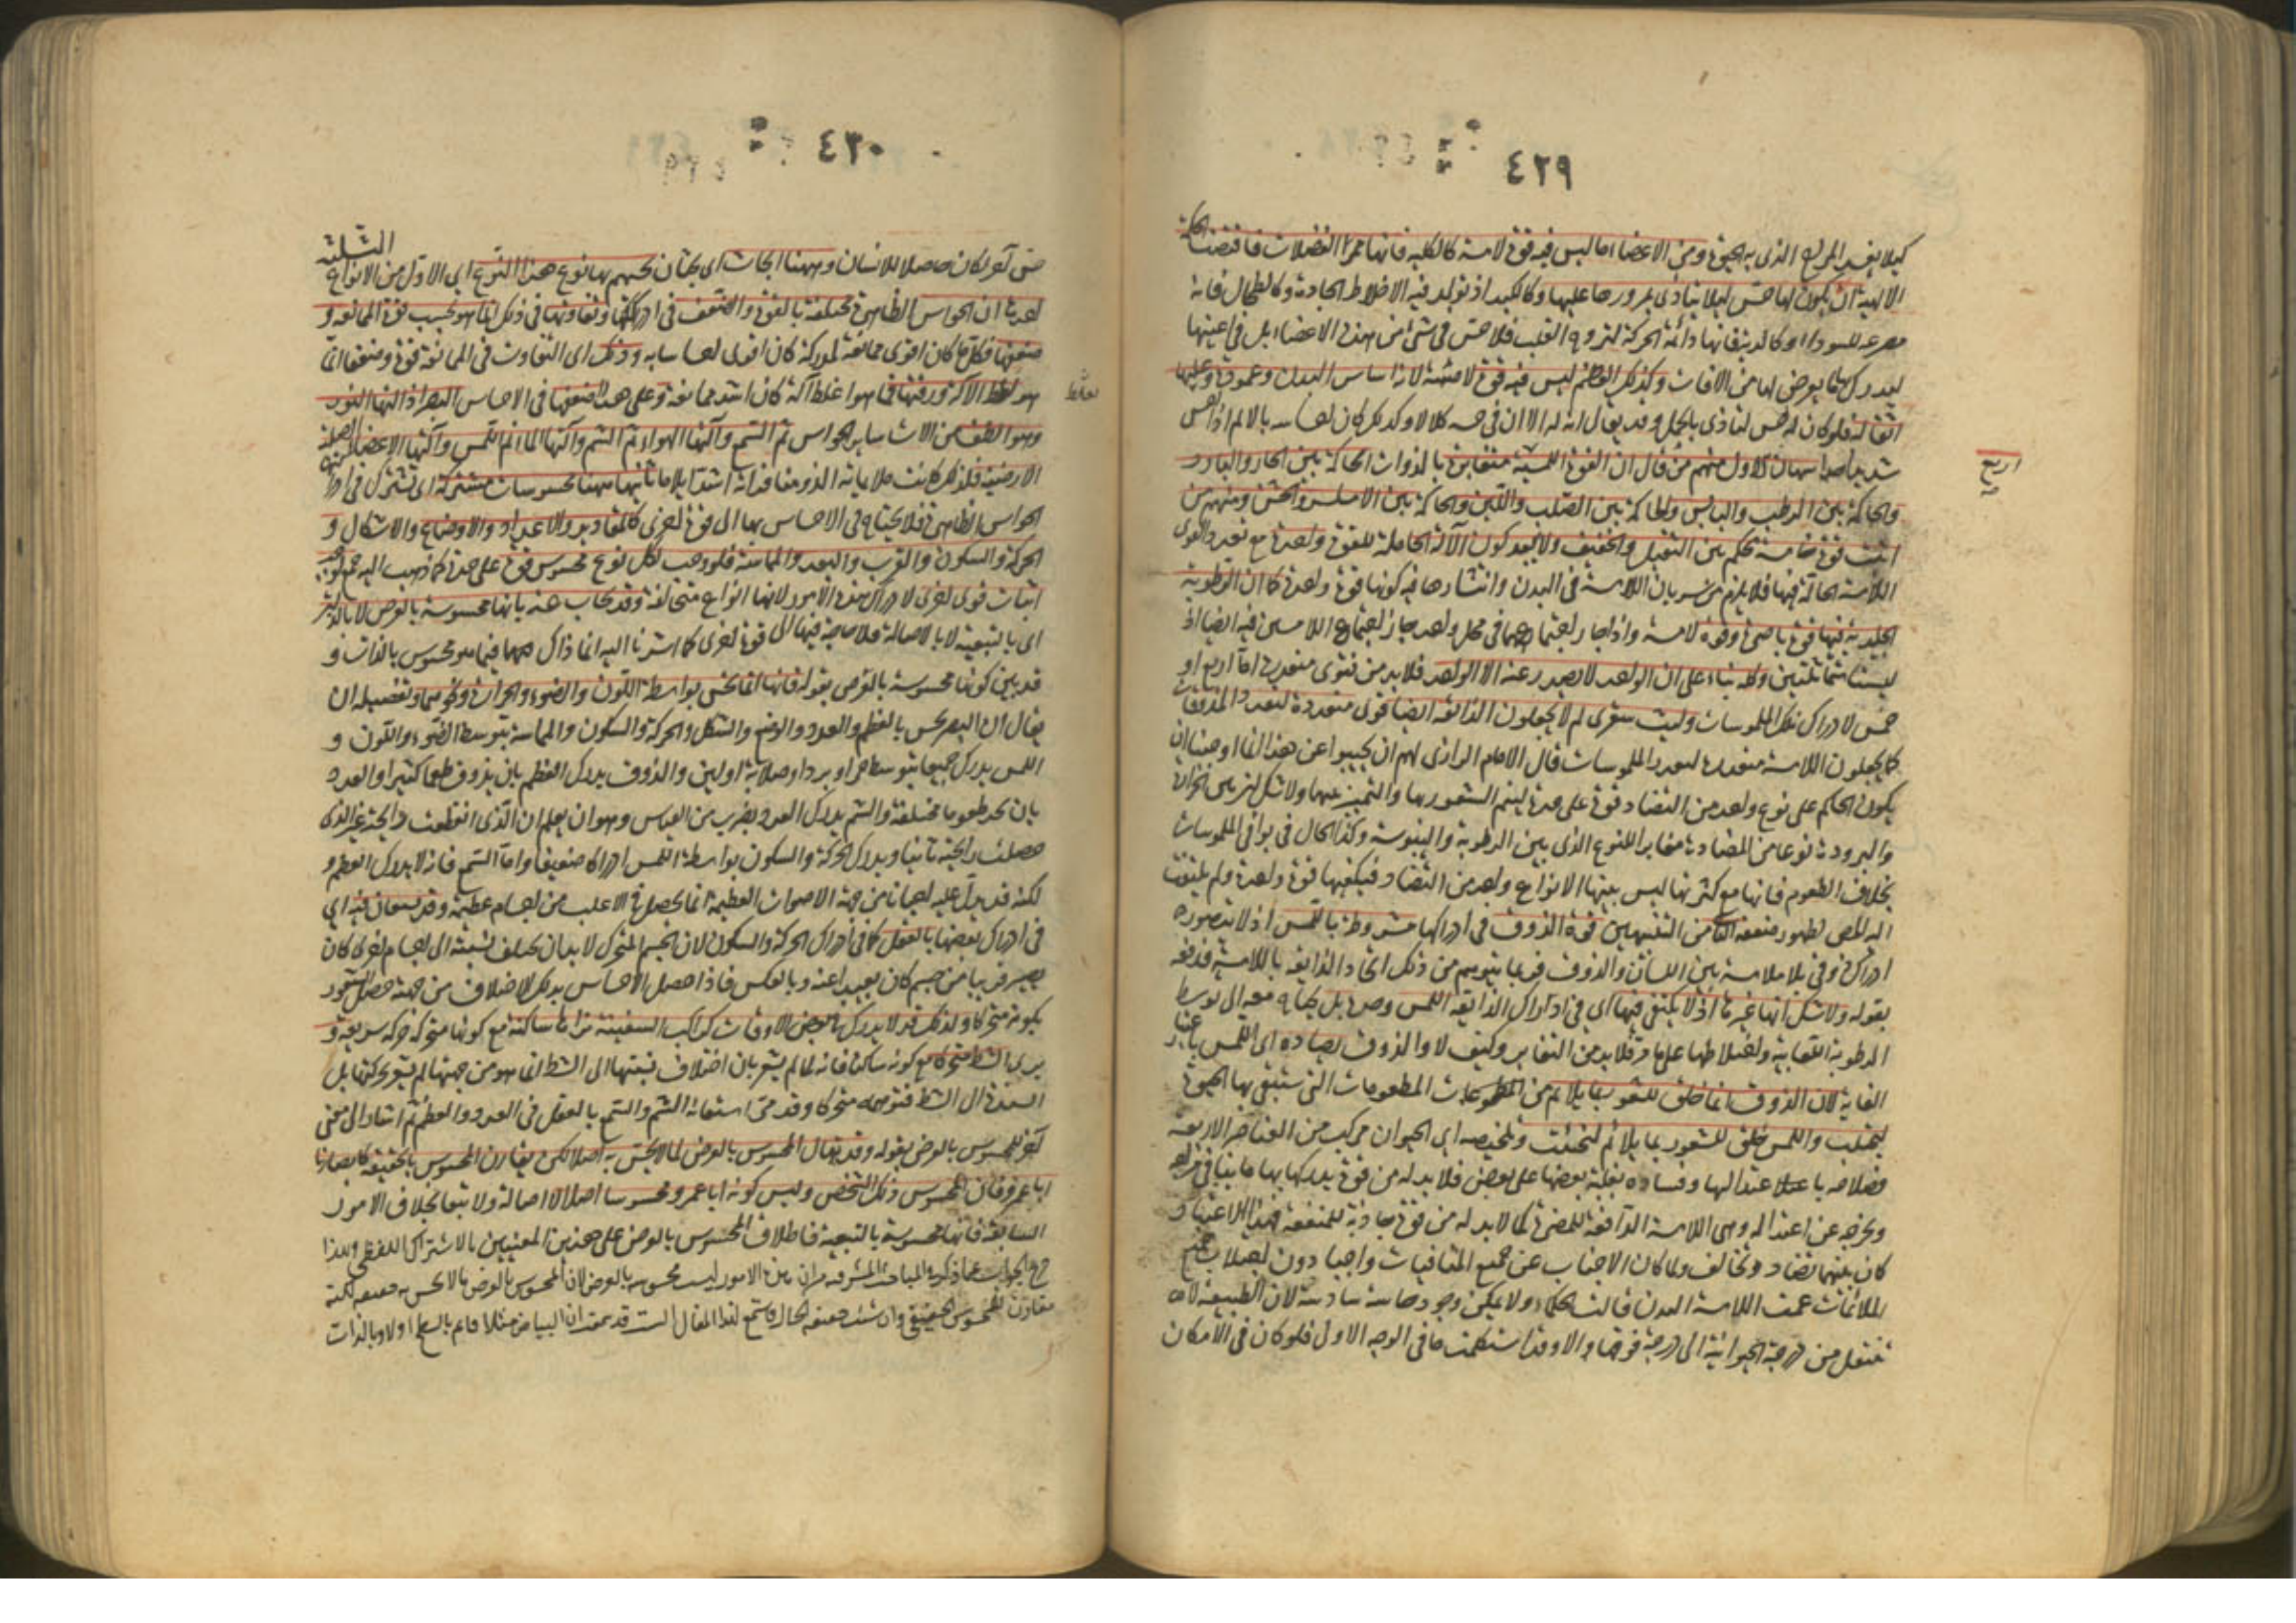 ٤٢٩
كيلا يفسد المزاج الذى به الحيوة ومن الاعضاء ما ليس فيه قوة لامسة كالكلية فانها ممر الفضلات فاقتضت الحكمة
الالهية ان يكون لها حس لئلا يتأذى بمرورها عليها وكالكبد اذ تولد فيه الاخلاط الحادة وكالطحال فانه
مفرغة للسوداء وكالرئة فانها دائمة الحركة لترويح القلب فلا حس فى شئ من هذه الاعضاء بل فى اغشيتها
ليدرك بها ما يعرض لها من الآفات وكذلك العظم ليس فيه قوة لامسة لانه اساس البدن وعموده وعليها
اثقاله فلو كان له حس لتأذى بالحمل وقد يقال انه له الا ان فى حسه كلالا ولذلك كان احساسه بالالم اذا احس
شديدا منهم من قال ان القوة اللمسية متغايرة بالذوات الحاكمة بين الحار والبارد
اربع
والحاكمة بين الرطب واليابس والحاكمة بين الصلب واللين والحاكمة بين الاملس والخشن ومنهم من
اثبت قوة خامسة تحكم بين الثقيل والخفيف ولا يبعد كون الآلة الحاملة للقوة واحدة مع تعدد القوى
اللامسة الحالة فيها فلا يلزم من سريان اللامسة فى البدن وانتشارها فيه كونها قوة واحدة كما ان الرطوبة
الجليدية فيها قوة باصرة وقوة لامسة واذا جاز اجتماعهما فى محل واحد جاز اجتماع اللامستين فيه ايضا اذ
ليستا متماثلتين وكله بناء على ان الواحد لا يصدر عنه الا الواحد فلا بد من قوى متعددة اما اربع او
خمس لادراك تلك الملموسات وليت شعرى لم لا يجعلون الذائقة ايضا قوى متعددة لتعدد المذوقات
كما يجعلون اللامسة متعددة لتعدد الملموسات قال الامام الرازى لهم ان يجيبوا عن هذا انما اوجبنا ان
يكون الحاكم على نوع واحد من التضاد قوة على حدة ليتم الشعور بها والتمييز بينهما ولا شك ان بين الحرارة
والبرودة نوعا من المضادة مغايرا للنوع الذى بين الرطوبة واليبوسة وكذا الحال فى بواقى الملموسات
بخلاف الطعوم فانها مع كثرتها ليس بينها الا نوع واحد من التضاد فيكفيها قوة واحدة ولم يلتفت
اليه المص لظهور ضعفه الثامن التنبيه قوة الذوق فى ادراكها مشروطة باللمس اذ لا يتصور
ادراك ذوقى بلا ملامسة بين اللسان والذوق فربما يتوهم من ذلك اتحاد الذائقة باللامسة فدفعه
بقوله ولا شك انها غيرها اذ لا يكتفى فيها اى فى ادراك الذائقة اللمس وحده بل يحتاج معه الى توسط
الرطوبة اللعابية واختلاطها على ما مر فلا بد من التغاير وكيف لا والذوق يضاده اى اللمس باعتبار
الغاية لان الذوق انما خلق للشعور بما يلائم من المطعومات التى ستبقى بها الحيوة
ليجتلب واللمس خلق للشعور بما يلائم ليجتنب وتلخيصه اى الحيوان مركب من العناصر الاربعة
فصلاحه باعتدالها وفساده بغلبة بعضها على بعض فلا بد له من قوة يدرك بها ما ينافى مزاجه
ويخرجه عن اعتداله وهى اللامسة الدافعة للمضرة كما لا بد له من قوة جاذبة للمنفعة فبهذا الاعتبار
كان بينهما تضاد وتخالف ولما كان الاجتناب عن جميع المنافيات واجبا دون اجتلاب جميع
الملائمات عمت اللامسة البدن قالت الحكماء ولا يمكن وجود حاسة سادسة لان الطبيعة لا
تنتقل من درجة الحيوانية الى درجة فوقها الا وقد استكملت ما فى الوجه الاول فلو كان فى الامكان
٤٣٠
حس آخر لكان حاصلا للانسان وههنا ابحاث اى يجب ان نختم بها نوع هذا النوع اى الاول من الانواع الثلثة
احدها ان الحواس الظاهرة مختلفة بالقوة والضعف فى ادراكها وتفاوتها فى ذلك انما هو بحسب قوة الممانعة و
ضعفها فكل ما كان اقوى ممانعة لمدركه كان اقوى احساسا به وذلك اى التفاوت فى الممانعة قوة وضعفا انما
هو لغلظ الآلة ورقتها فما هو اغلظ آلة كان اشد ممانعة وعلى هذا اضعفها فى الاحساس البصر اذ آلتها النور
وهو الطف من الات سائر الحواس ثم السمع وآلتها الهواء ثم الشم وآلتها الماء ثم اللمس وآلتها الاعضاء الصلبة
الارضية فلذلك كانت ملايماته الذ ومنافراته اشد ايلاما ثانيها ههنا محسوسات مشتركة اى تشترك فى ادراكها
الحواس الظاهرة فلا يحتاج فى الاحساس بها الى قوة اخرى كالمقادير والاعداد والاوضاع والاشكال و
الحركة والسكون والقرب والبعد والمماسة فلو وجب لكل نوع محسوس قوة على حدة كما ذهب اليه جمع لوجب
اثبات قوى اخرى لادراك هذه الامور لانها انواع متخالفة وقد يجاب عنه بانها محسوسة بالعرض لا بالذات
اى بالتبعية لا بالاصالة فلا حاجة فيها الى قوة اخرى كما اشرنا اليه انما ذاك فيما هو محسوس بالذات و
قد بين كونها محسوسة بالعرض بقوله فانها انما تحس بواسطة اللون والضوء والحرارة ونحوهما وتفصيله ان
يقال ان البصر يحس بالعظم والعدد والوضع والشكل والحركة والسكون والمماسة بتوسط الضوء واللون و
اللمس يدرك جميعها بتوسط حر او برد او صلابة او لين والذوق يدرك العظم بان يذوق طعما كثيرا والعدد
بان يجد طعوما مختلفة والشم يدرك العدد بضرب من القياس وهو ان يعلم ان الذى انقطعت رايحته غير الذى
حصلت رايحته ثانيا ويدرك الحركة والسكون بواسطة اللمس ادراكا ضعيفا واما السمع فانه لا يدرك العظم و
لكنه قد يدل عليه احيانا من جهة الاصوات العظيمة انما يحصل فى الاغلب من اجسام عظيمة وقد يستعان فيه اى
فى ادراك بعضها بالعقل كما فى ادراك الحركة والسكون لان الجسم المتحرك لا بد ان يختلف نسبته الى اجسام اخرى كان
يصير قريبا من جسم كان بعيدا عنه وبالعكس فاذا حصل الاحساس بذلك الاختلاف من جهة حصل الشعور
بكونه متحركا ولذلك قد لا يدرك فى بعض الاوقات كراكب السفينة يراها ساكنة مع كونها متحركة حركة سريعة و
يرى الشط متحركا مع كونه ساكنا فانه لما لم يشعر بان اختلاف نسبتها الى الشط انما هو من جهتها لم يشعر بحركتها بل
اسندها الى الشط فتوهمه متحركا وقد مر استعانة الشم والسمع بالعقل فى العدد والعظم ثم اشار الى معنى
آخر للمحسوس بالعرض بقوله وقد يقال المحسوس بالعرض لما لا يحس به اصلا لكن يقارن المحسوس بالحقيقة كابصارنا
ابا عمرو فان المحسوس ذلك الشخص وليس كونه ابا عمرو محسوسا اصلا لا اصالة ولا تبعا بخلاف الامور
السابقة فانها محسوسة بالتبعية فاطلاق المحسوس بالعرض على هذين المعنيين بالاشتراك اللفظى وبهذا
خرج الجواب عما ذكره فى المباحث المشرقية من ان هذه الامور ليست محسوسة بالعرض لان المحسوس بالعرض ما لا يحس به حقيقة لكنه
مقارن للمحسوس الحقيقى وان شئت حقيقة الحال فاستمع لهذا المقال الست قد سمعت ان البياض مثلا قايم بالسطح اولا وبالذات